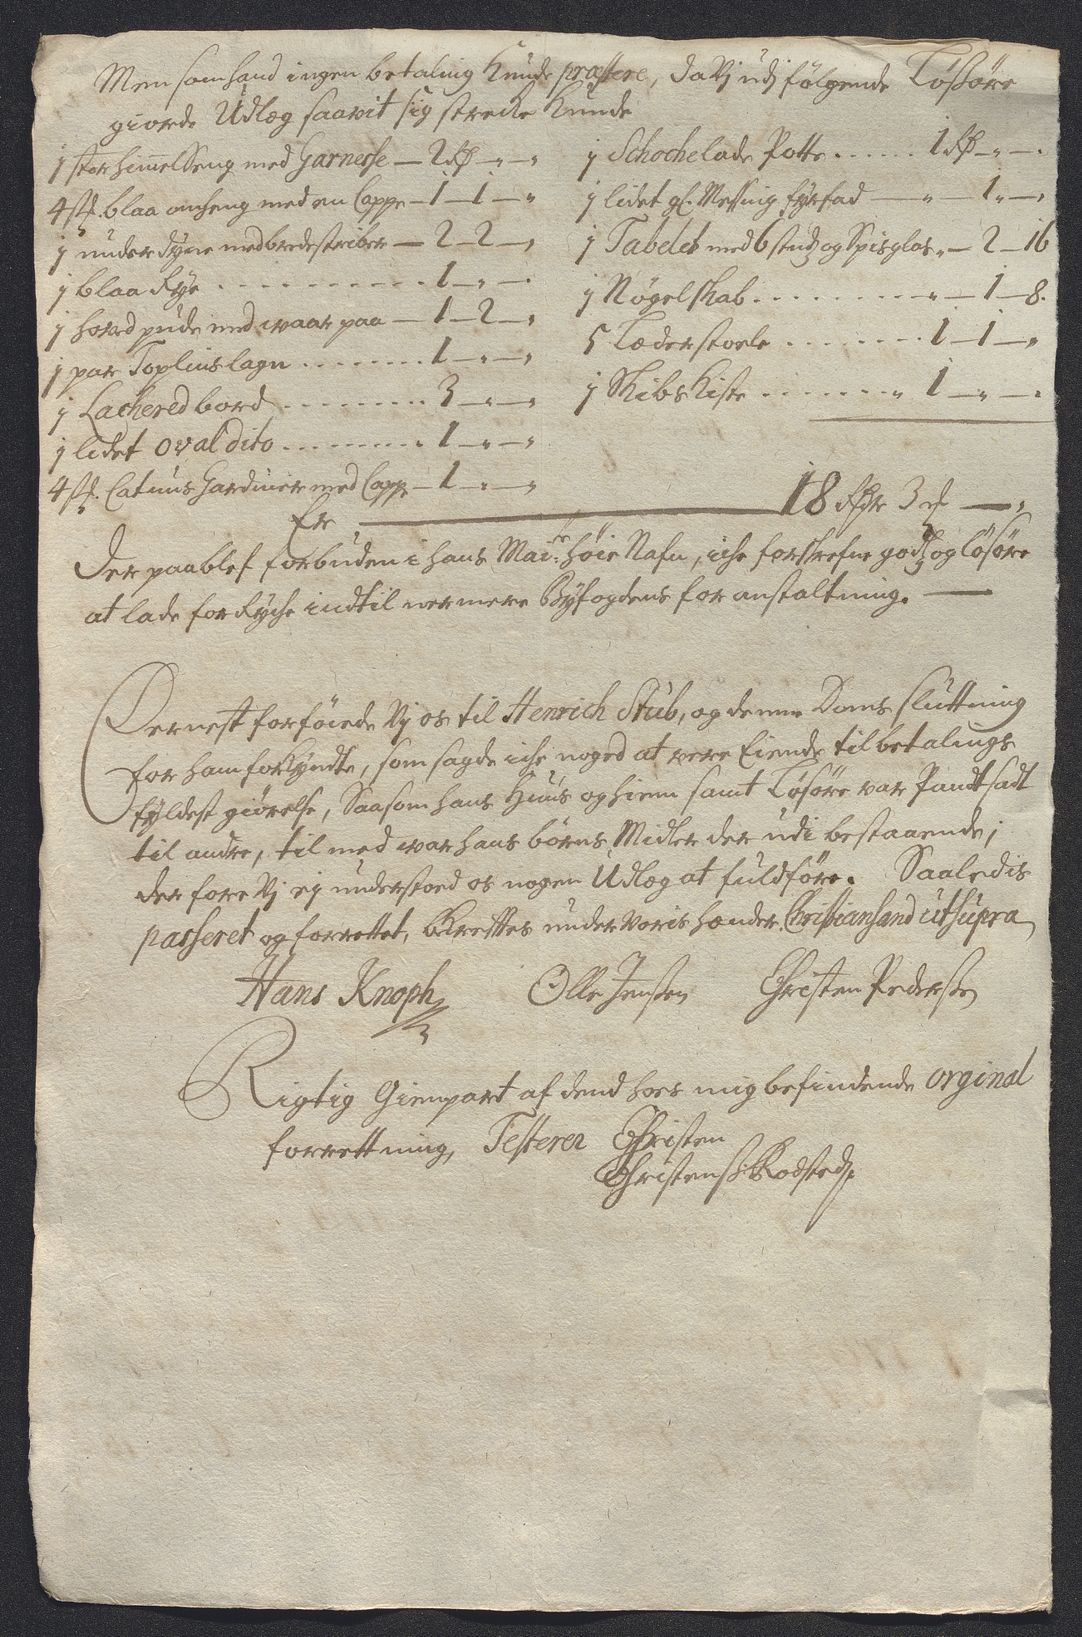 Men som hand ingen betaling kunde præstere, da Vj udj følgende Løssøre
giorde Udlæg saavit sig strecke kunde
1 stor himmelSeng med Garnesse — 2 Rd — „ — „
4 st. blaa omheng med en Cappe — 1 — 1 — „
1 under dyne med bredestriber — 2 — 2 — „
1 blaa Rye . . . . . . . . . . . 1 — „ — .
1 hoved pude med waar paa — 1 — 2 — „
1 par Toplins lagn . . . . . . . 1 — „ — „
1 Lachered bord . . . . . . . . 3 — „ — „
1 lidet oval dito . . . . . . . . 1 — „ — „
4 st. Catuns Gardiner med Capp — 1 — „ — „
1 Schochelade Potte . . . . . 1 Rd — „ — .
1 lidet gl. Messing fyrfad — „ — 1 „ — „
1 Tabelet med 6 stud og Spisglas „ — 2 — 16
1 Nøgel skab . . . . . . . . „ — 1 — 8.
5 Læderstoele . . . . . . . 1 — 1 — „
1 Skibs kiste . . . . . . . „ 1 — „ — .
Er — 18 Rdr 3 — „
Der paa blef forbuden i hans Mai.ts høie Nafn, iche forskrefne godz og løsøre
at lade for Ryche indtil nermere Byfogdens for anstaltning. —
Dernest forføiede Vj os til Henrich Stub, og denne Doms Sluttning
for ham forkyndte, som sagde iche noged at were Eiende til betalings
fyldest giørelse, Saasom hans Huus og hiem samt Løsøre var Pandtsadt
til andre, til med war hans børns Midler der udi bestaaende;
der fore Vj ej understoed os nogen Udlæg at fuldføre. Saaledis
passeret og forrettet, Bkreftes under Voris hænder. Christiansand ut supra
Hans Knoph Olle Jensen Christen Pedersen
Rigtig Gienpart af dend hoes mig befindende orginal
forrettning, Testerer Christen
Christenss: Rodsted.